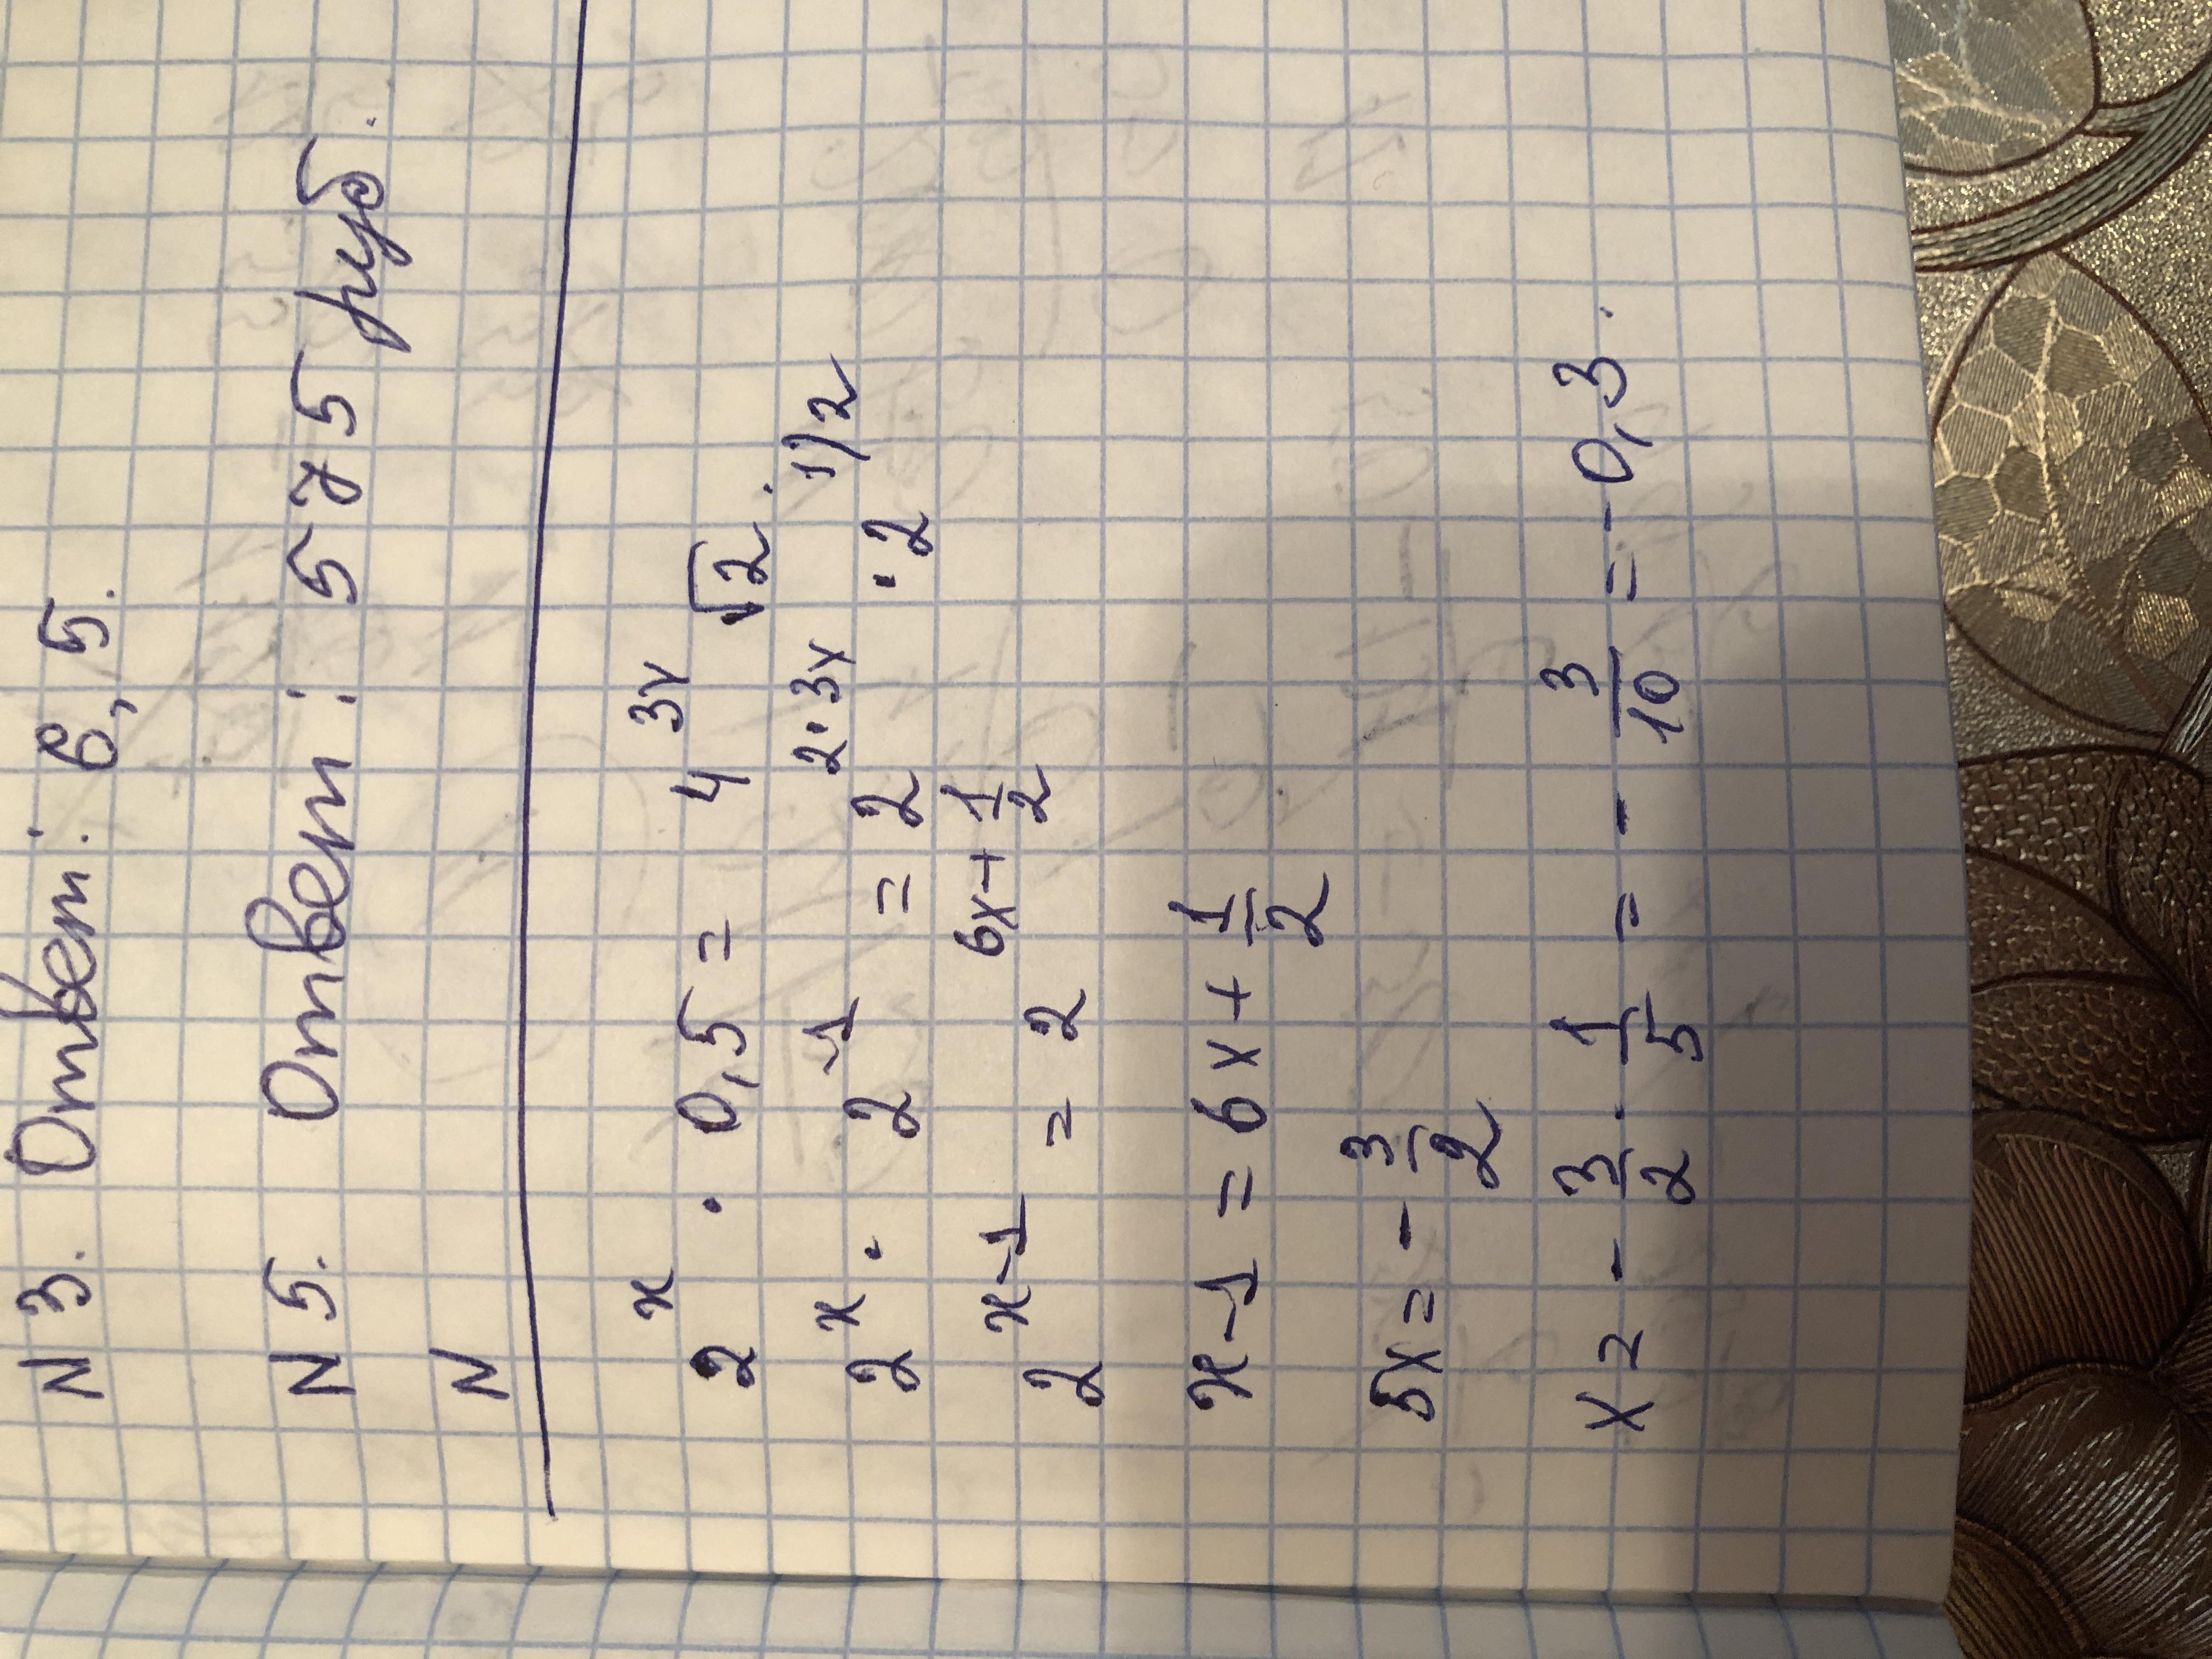 N 3. Ответ: 6,5.
N 5. Ответ: 575 руб.
N
2^x · 0,5 = 4^3x √2.
2^x · 2^-1 = 2^2·3x · 2^1/2
2^x-1 = 2^6x+1/2
x-1 = 6x + 1/2
5x = - 3/2
x = - 3/2 · 1/5 = - 3/10 = -0,3.